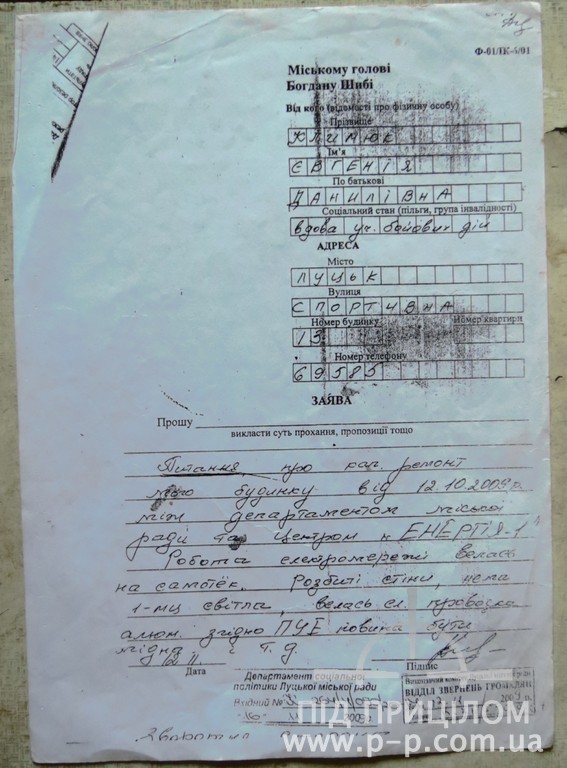 Ф-01/ПК-4/01
Міському голові
Богдану Шибі
Від кого (відомості про фізичну особу)
Прізвище
КЛИМЮК
Ім'я
ЄВГЕНІЯ
По батькові
ДАНИЛІВНА
Соціальний стан (пільги, група інвалідності)
вдова уч. бойових дій
АДРЕСА
Місто
ЛУЦЬК
Вулиця
СПОРТИВНА
Номер будинку Номер квартири
13
Номер телефону
69585
ЗАЯВА
Прошу
викласти суть прохання, пропозиції тощо
Питання про кап. ремонт
мого будинку від 12.10.2009р
між департаментом міської
ради та Центром "ЕНЕРГІЯ-1"
Робота електромережі велась
на самотёк. Розбиті стіни, нема
1-му світла, велась ел. проводка
алюм. згідно ПУЕ повина бути
мідна і т.д.
Дата Підпис
Департамент соціальної
політики Луцької міської ради
Вхідний №
ВІДДІЛ ЗВЕРНЕНЬ ГРОМАДЯН
ПІД ПРИЦІЛОМ
www.p-p.com.ua